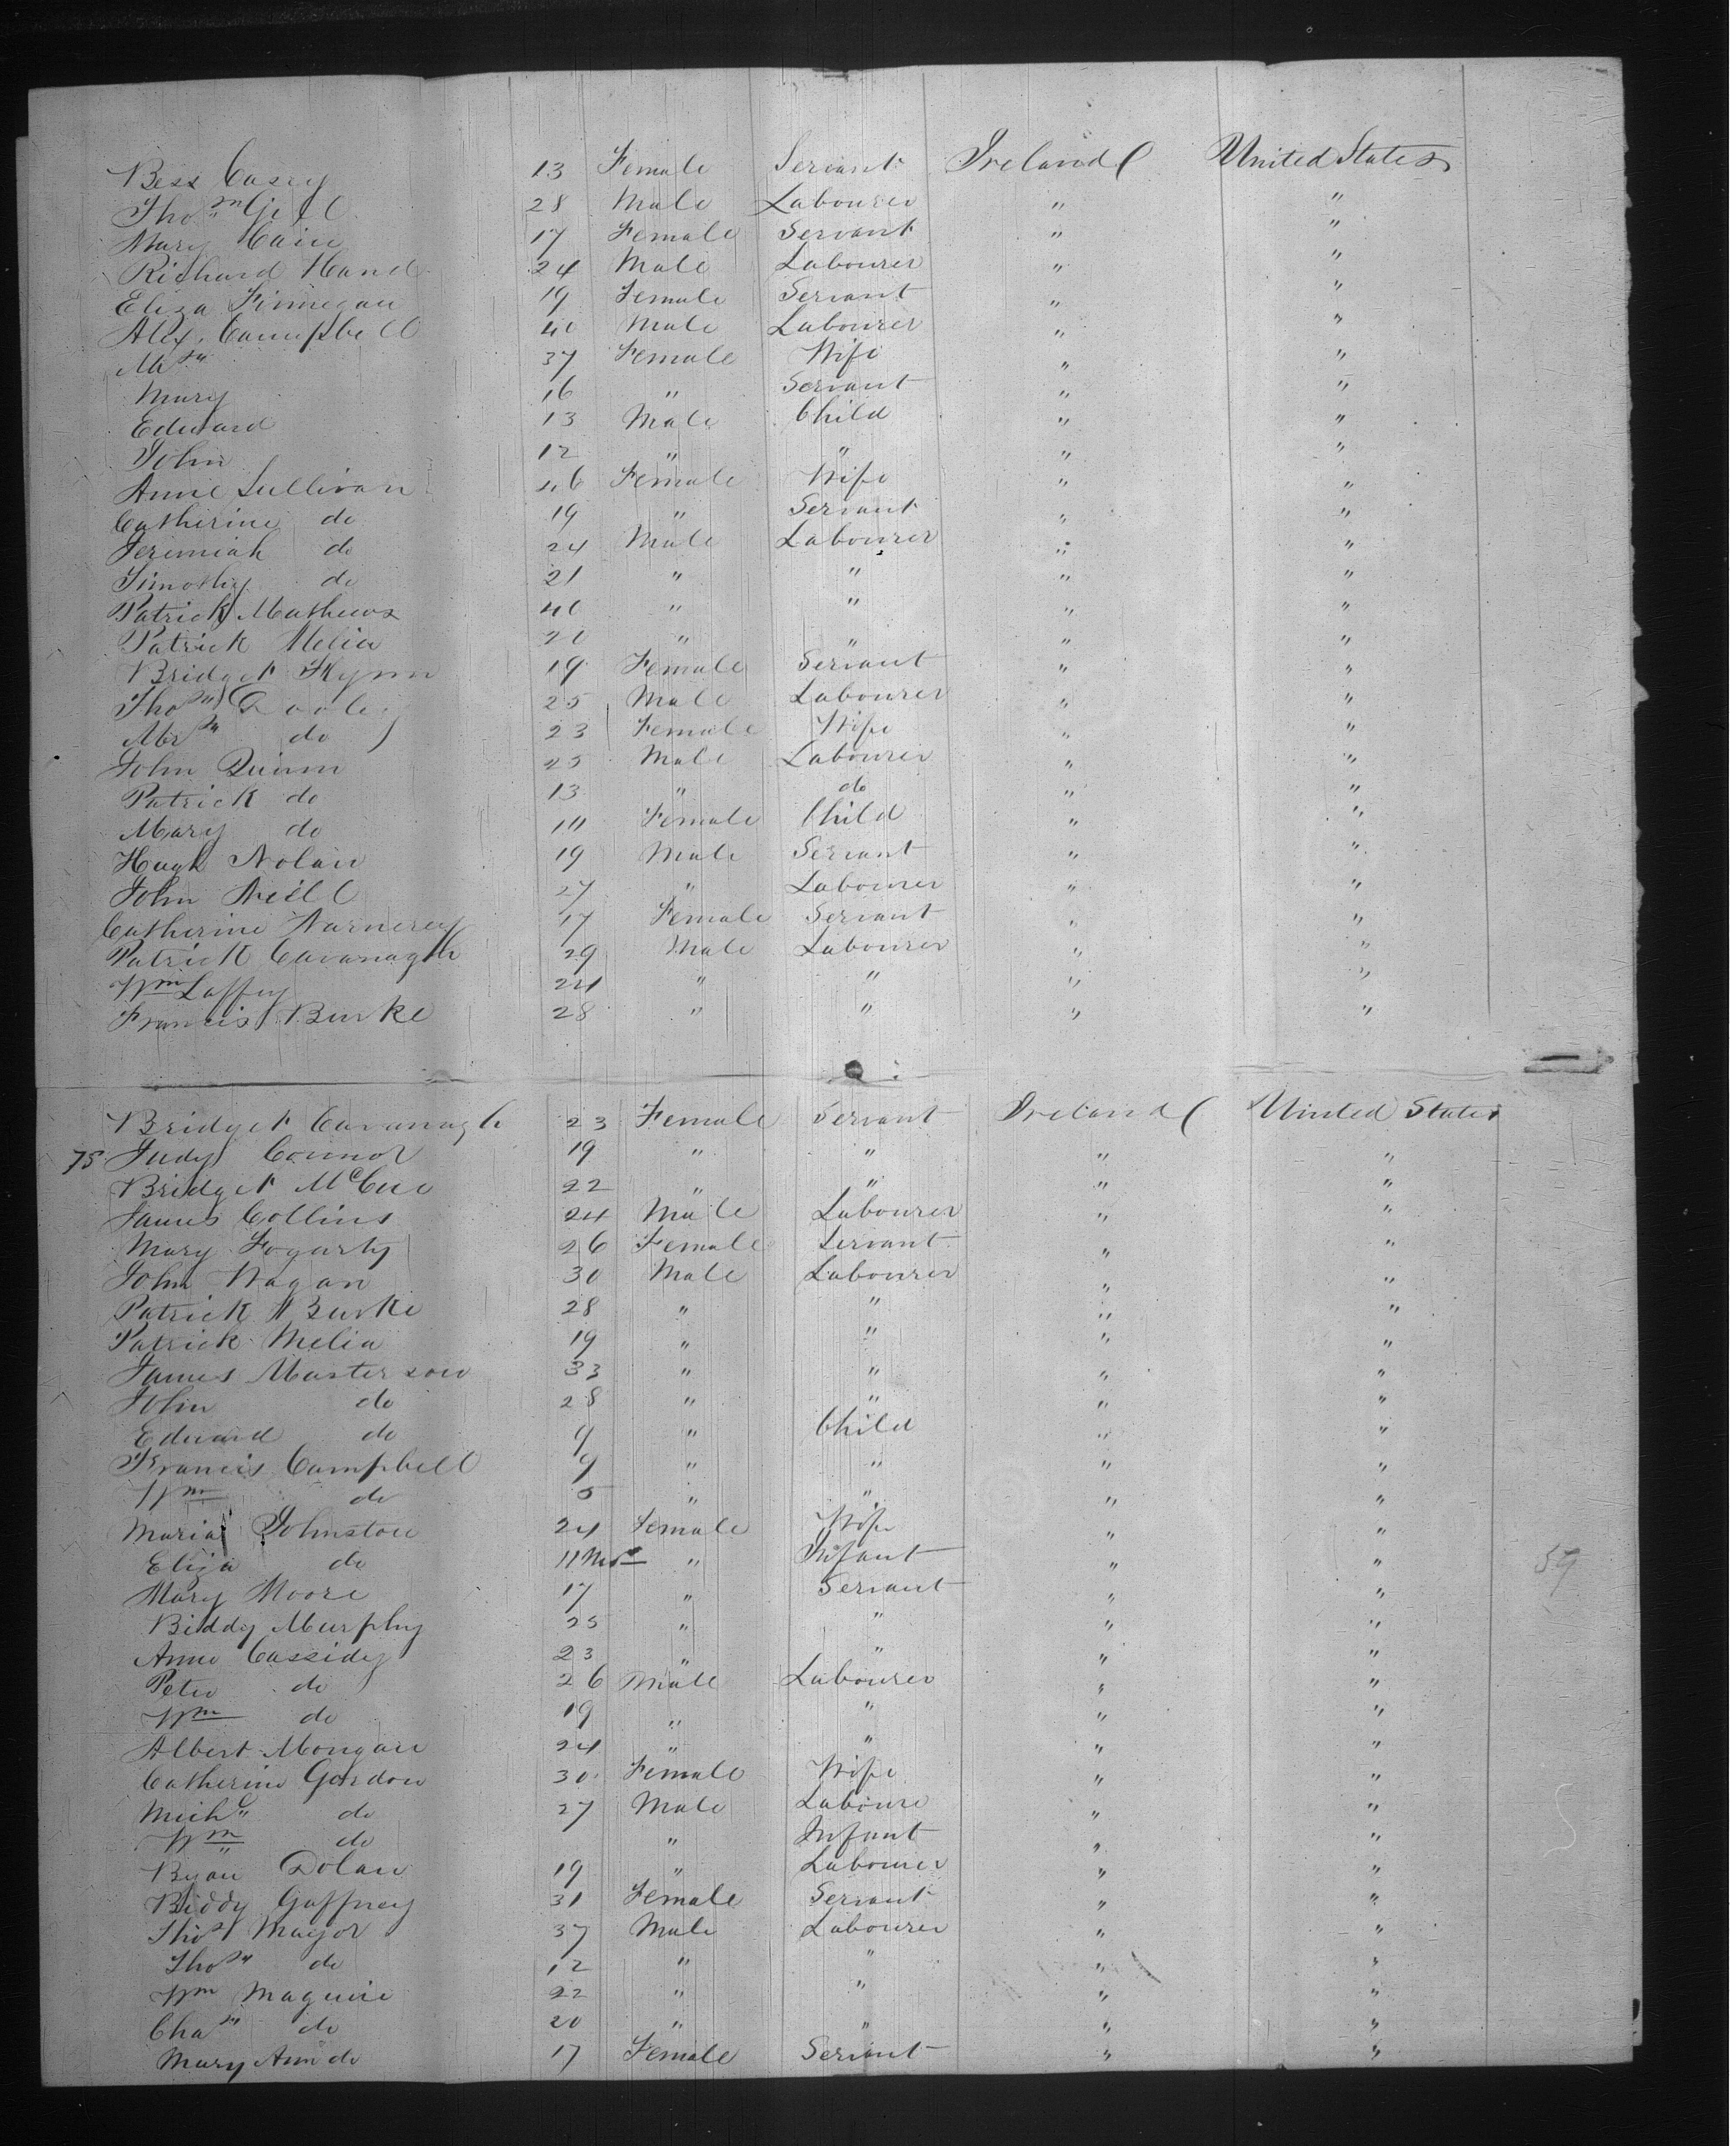 Bess Casey 13 Female Servant Ireland United States
Thos Gill 28 Male Labourer " "
Mary Cain 17 Female Servant " "
Richard Hand 24 Male Labourer " "
Eliza Finnegan 19 Female Servant " "
Alex. Campbell 40 Male Labourer " "
37 Female Wife " "
Mary 16 " Servant " "
Edward 13 Male Child " "
John 12 " " " "
Anne Sullivan 46 Female Wife " "
Catherine do 19 " Servant " "
Jeremiah do 24 Male Labourer " "
Timothy do 21 " " " "
Patrick Mathews 40 " " " "
Patrick Melia 20 " " " "
Bridget Flynn 19 Female Servant " "
Thos Dooley 25 Male Labourer " "
Mrs do 23 Female Wife " "
John Quinn 25 Male Labourer " "
Patrick do 13 " do " "
Mary do Female Child " "
Hugh Nolan 19 Male Servant " "
John Neill 27 " Labourer " "
Catherine Narnerey 17 Female Servant " "
Patrick Cavanagh 29 Male Labourer " "
Wm Laffey 24 " " " "
Francis Burke 28 " " " "
Bridget Cavanagh 23 Female Servant Ireland United States
75 Judy Connor 19 " " " "
Bridget McCue 22 " " " "
James Collins 24 Male Labourer " "
Mary Fogarty 26 Female Servant " "
John Nagan 30 Male Labourer " "
Patrick Burke 28 " " " "
Patrick Melia 19 " " " "
James Masterson 33 " " " "
John do 28 " " " "
Edward do 9 " Child " "
Francis Campbell 9 " " " "
Wm do 5 " " " "
Maria Johnston 24 Female Wife " "
Eliza do 11 Mos " Infant " " 59
Mary Moore 17 " Servant " "
Biddy Murphy 25 " " " "
Anne Cassidy 23 " " " "
Peter do 26 Male Labourer " "
Wm do 19 " " " "
Albert Mongan 24 " " " "
Catherine Gordon 30 Female Wife " "
Michl do 27 Male Laboure " "
Wm do " Infant " "
Bryan Dolan 19 " Labourer " "
Biddy Gaffney 31 Female Servant " "
Thos Mayor 37 Male Labourer " "
Thos do 12 " " " "
Wm Maguire 22 " " " "
Chas do 20 " " " "
Mary Ann do 17 Female Servant " "